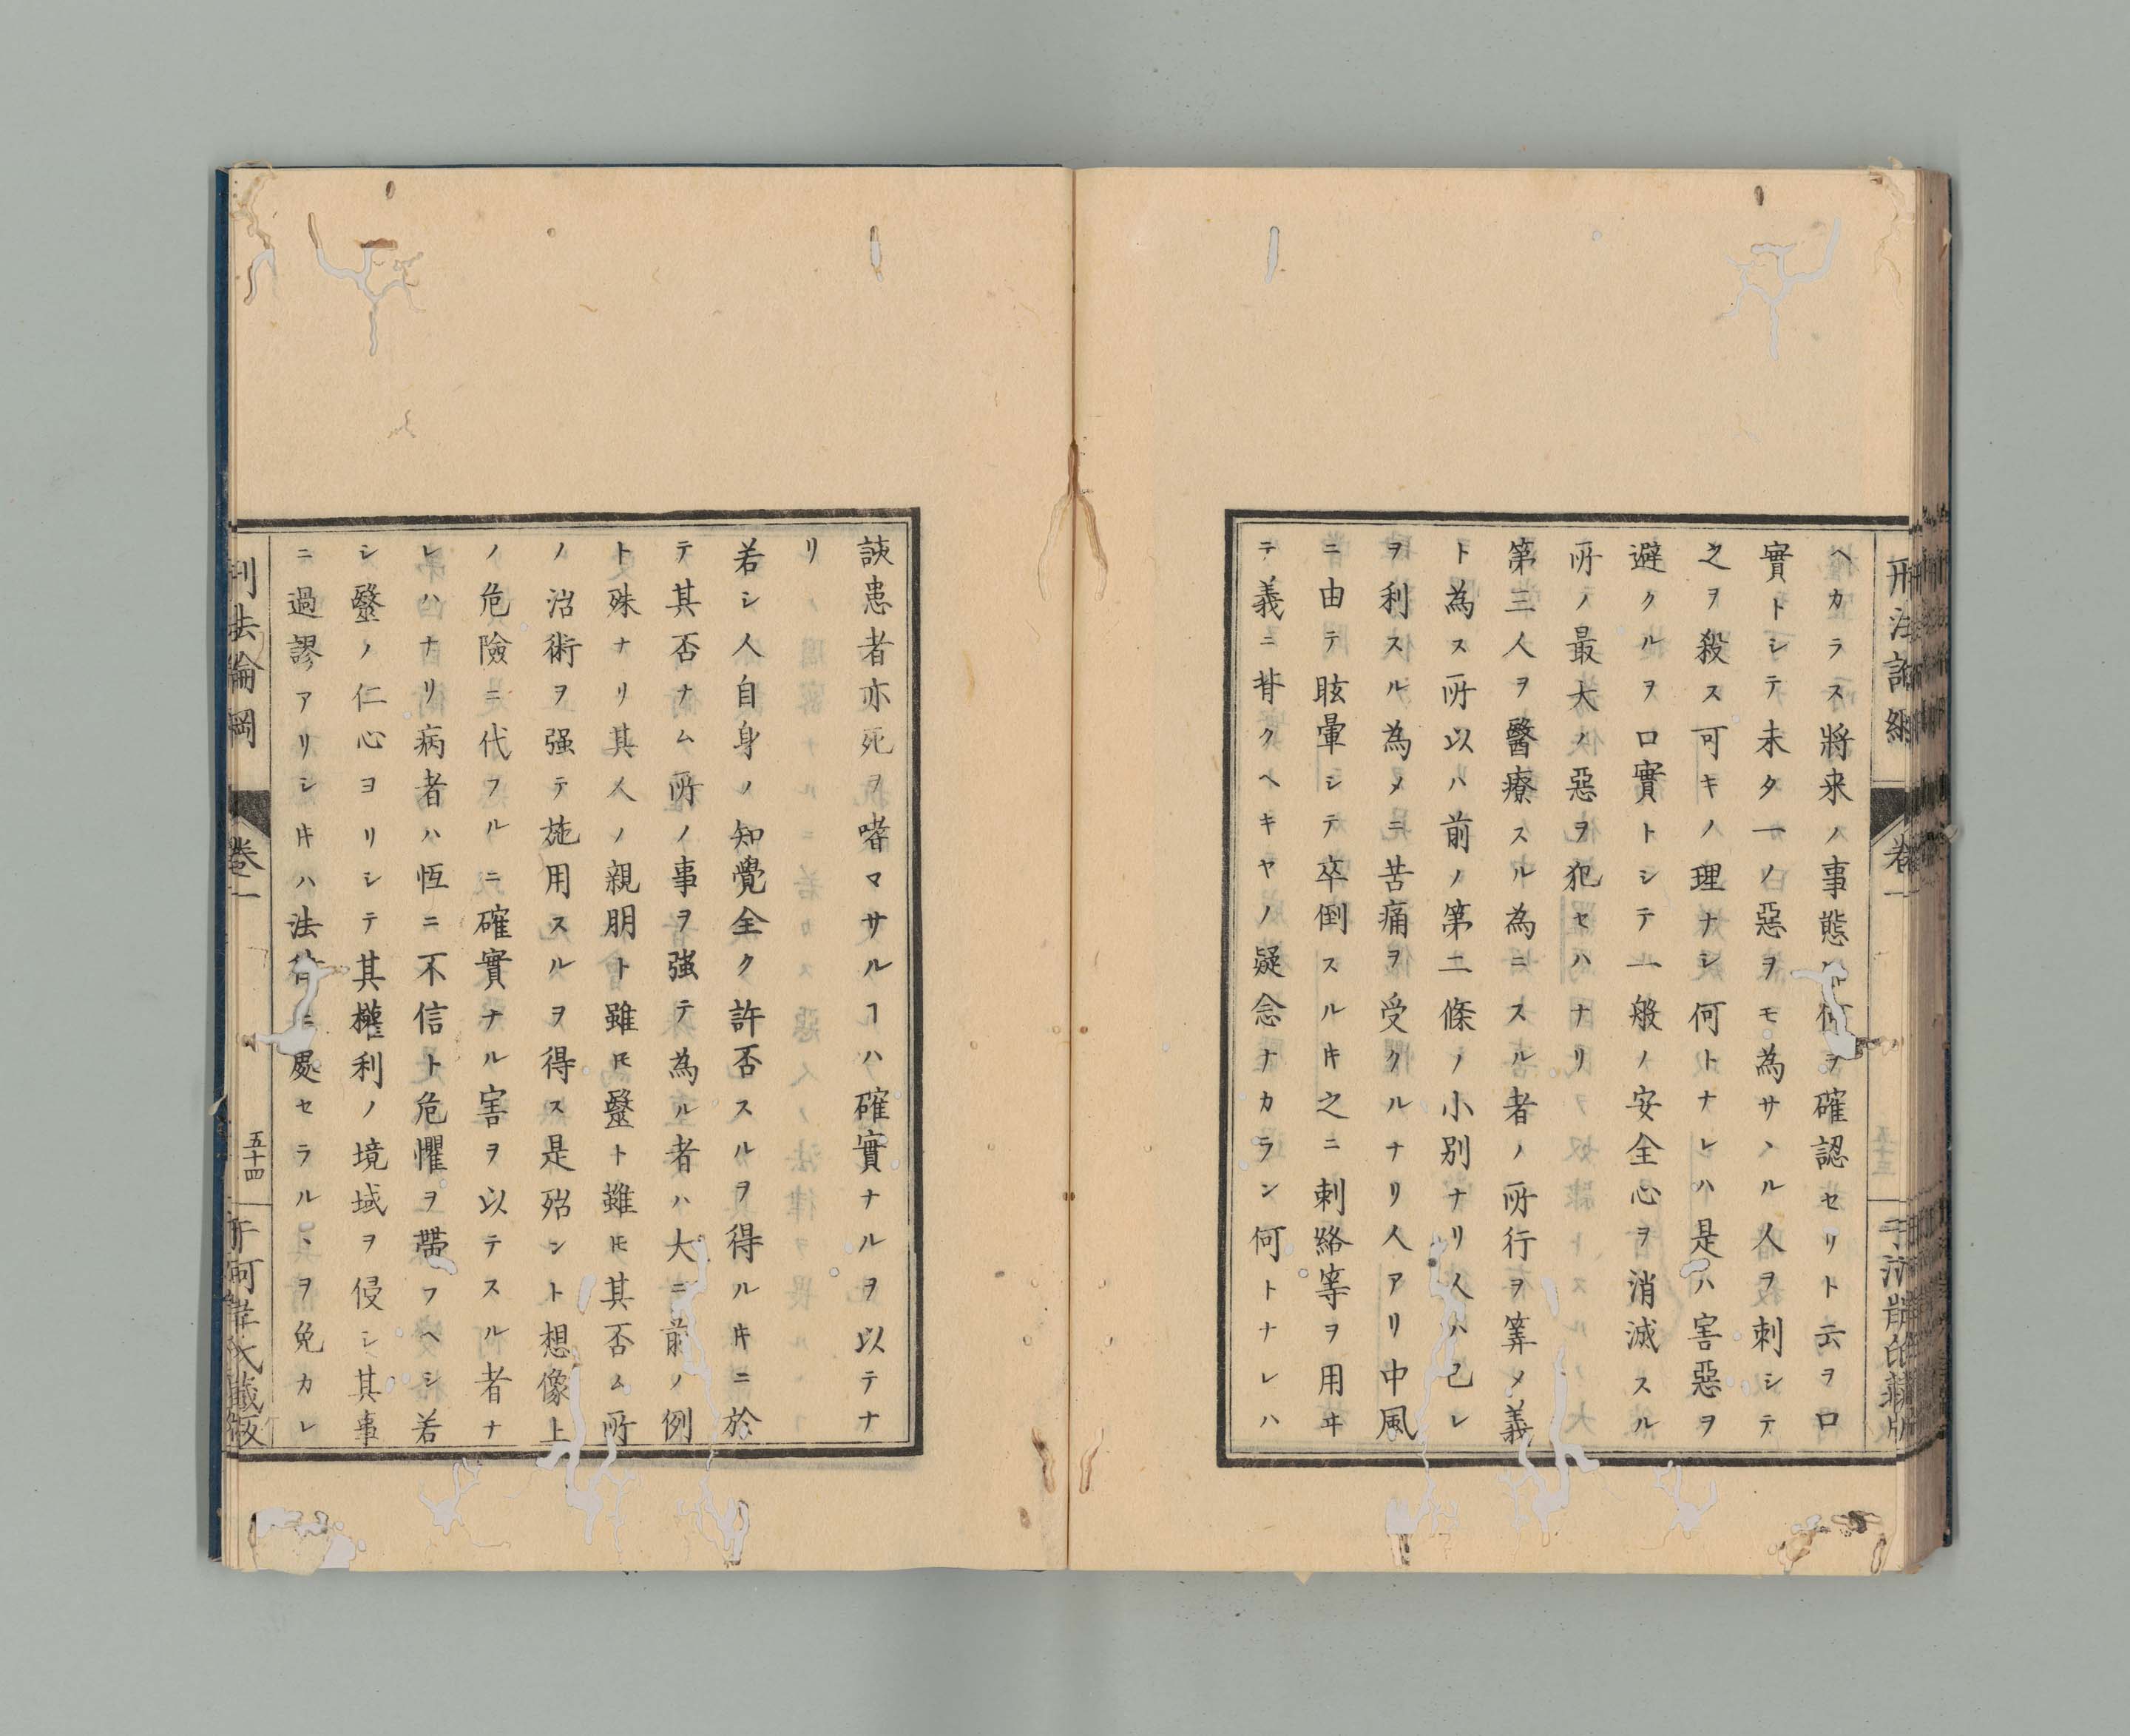 ヘカラス將来ノ事態ヲ確認セリト云ヲロ
實トシテ未タ一ノ惡ヲモ為サヽル人ヲ刺シテ
之ヲ殺ス可キノ理ナシ何トナレハ是ハ害惡ヲ
避クルヲ口實トシテ一般ノ安全心ヲ消滅スル
所ノ最大ノ惡ヲ犯セハナリ
第三人ヲ醫療スル為ニスル者ノ所行ヲ筭メ義
ト為ス所以ハ前ノ第二條ノ小別ナリ人ハ己レ
ヲ利スル為メニ苦痛ヲ受クルナリ人アリ中風
ニ由テ眩暈シテ卒倒スルキ之ニ刺絡等ヲ用ヰ
テ義ニ背クヘキヤノ疑念ナカラン何トナレハ
該患者亦死ヲ嗜マサルヿハ確實ナルヲ以テナ
リ
若シ人自身ノ知覺全ク許否スルヲ得ルキニ於
テ其否ナム所ノ事ヲ強テ為ル者ハ大ニ前ノ例
ト殊ナリ其人ノ親朋ト雖𪜈醫ト雖𪜈其否ム所
ノ治術ヲ强テ施用スルヲ得ス是殆ント想像上
ノ危險ニ代フルニ確實ナル害ヲ以テスル者ナ
レハナリ病者ハ恆ニ不信ト危懼ヲ帶フヘシ若
シ醫ノ仁心ヨリシテ其權利ノ境域ヲ侵シ其事
ニ過謬アリシキハ法ニ處セラルヽヲ免カレ
卷一
五十四